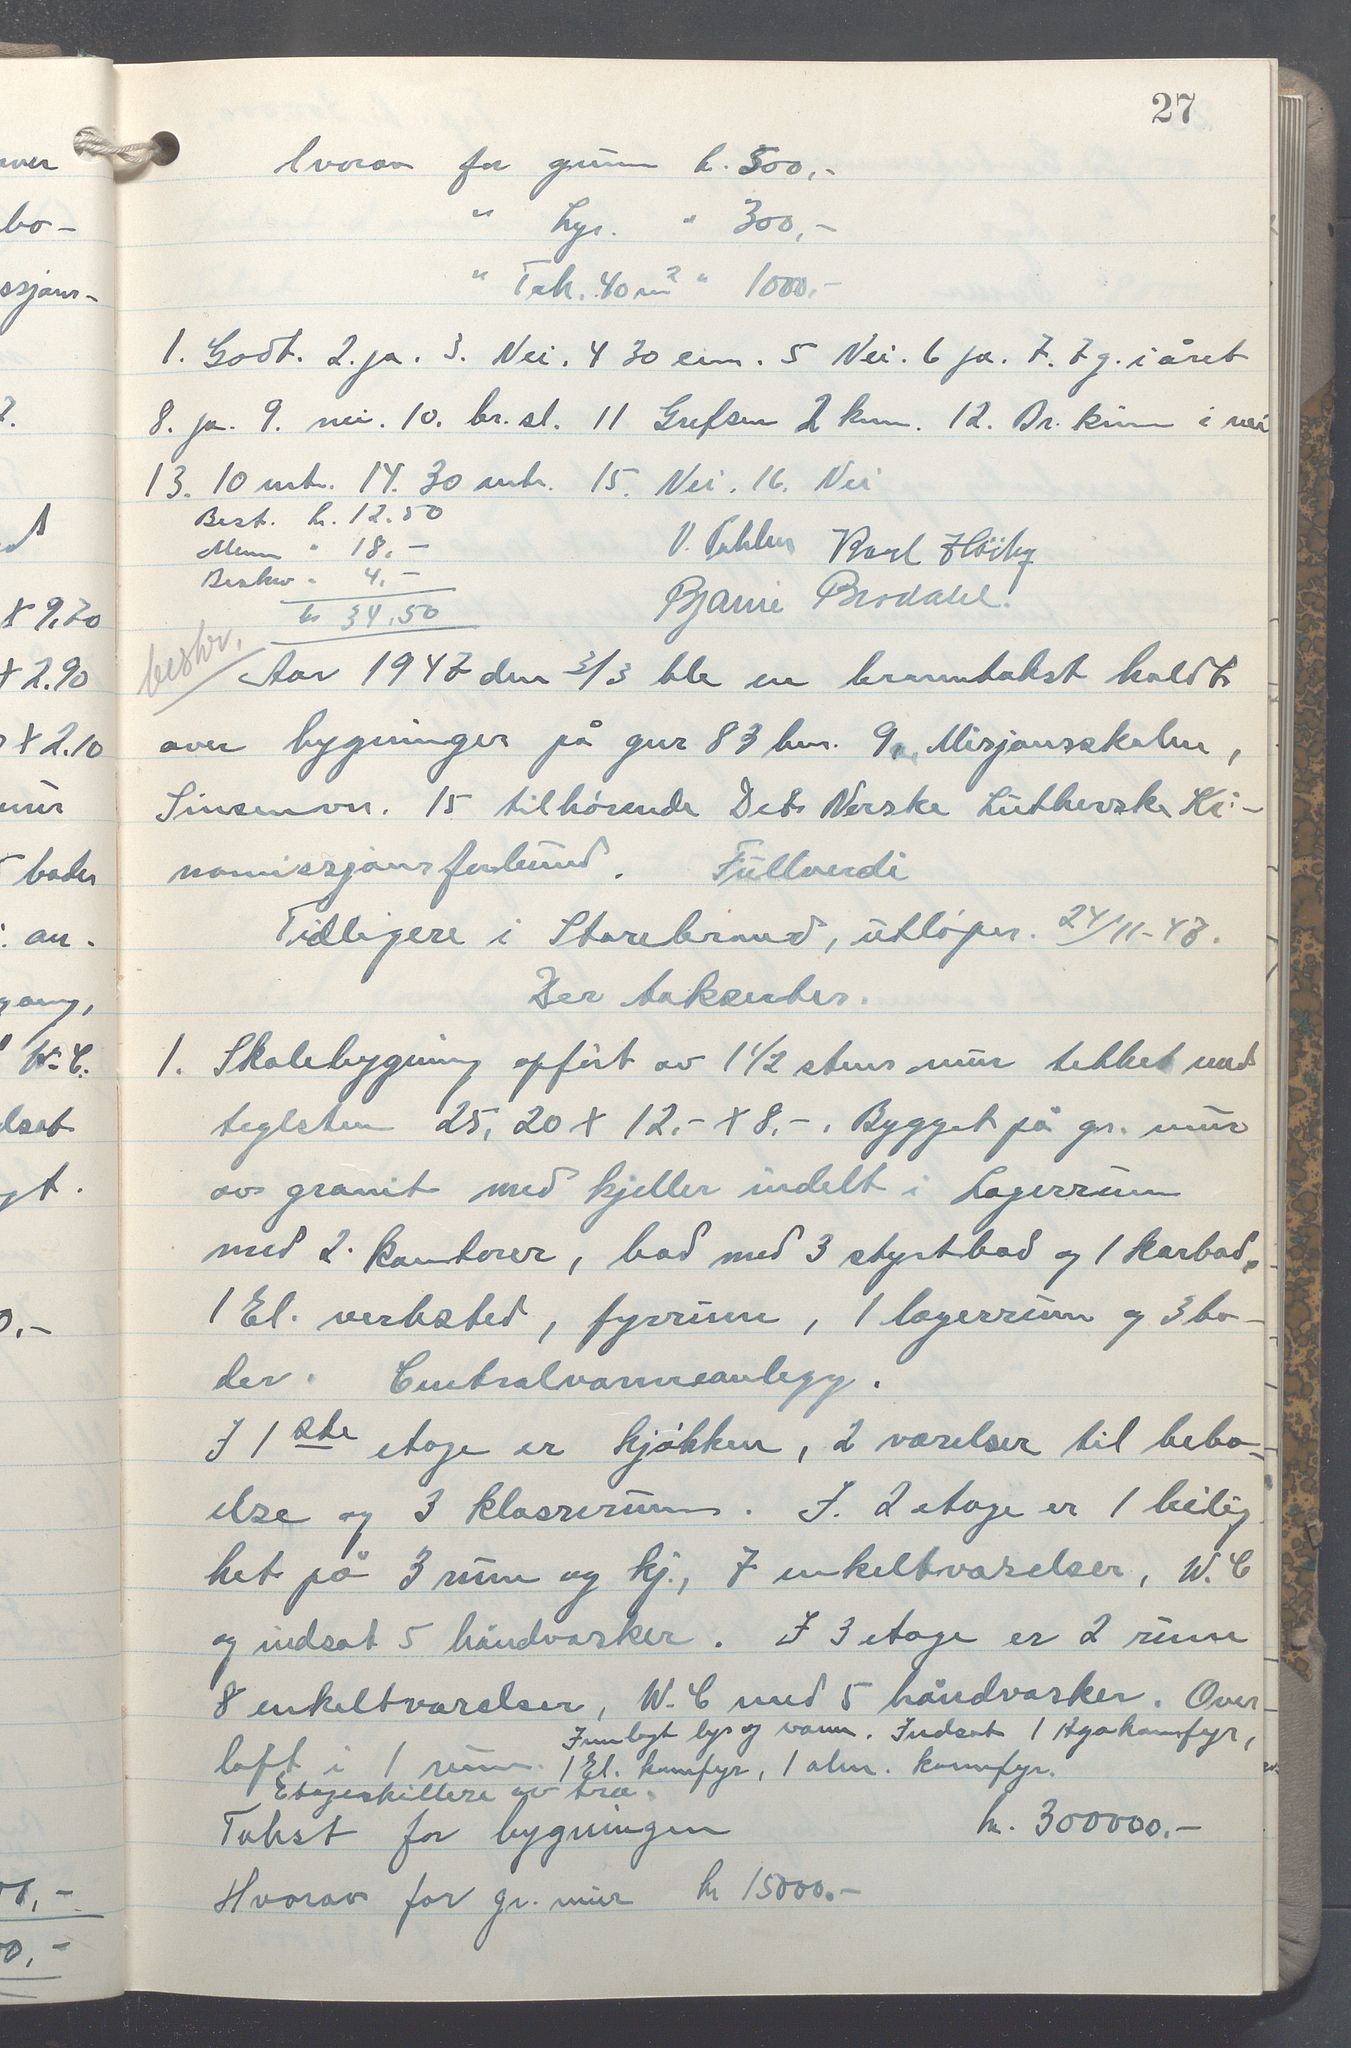 27
hvorav for grmur kr. 500,-
" Lys. " 300,-
" Tak. 40 m² " 1000.-
1. Godt. 2. ja. 3. Nei. 4 30 cm. 5 Nei. 6 ja. 7. 7 g. i året
8. ja. 9. nei. 10. br. st. 11 Grefsen 2 km. 12. Br. kum i vei
13. 10 mtr. 14. 30 mtr. 15. Nei. 16. Nei
Best. kr. 12.50
Menn " 18,-
Beskr " 4,-
kr 34,50
Karl Høiby
Bjarne Brodahl.
beskr.
Aar 1947 den 3/3 ble en branntakst holdt
over bygninger på gnr 83 bnr. 9, Misjonsskolen,
Sinsenvn. 15 tilhørende Det Norske Lutherske Ki-
namissjonsforbund. Fullverdi
Tidligere i Storebrand, utløper. 24/11-47.
Der takserter.
1. Skolebygning opført av 1 1/2 stens mur tekket med
teglsten 25,20 x 12.- x 8,-. Bygget på gr. mur
av granit med kjeller indelt i Lagerrum
med 2. kontorer, bad med 3 styrtbad og 1 karbad.
1 El. verksted, fyrrum, 1 lagerrum og 3 bo-
der. Centralvarmeanlegg.
I 1ste etage er kjøkken, 2 værelser til bebo-
else og 3 klasserum. I. 2 etage er 1 leilig
het på 3 rum og kj., 7 enkeltværelser, W.C
og indsat 5 håndvasker. I 3 etage er 2 rum
8 enkeltværelser, W.C med 5 håndvasker. Over
loft i 1 rum. Innlagt lys og vann. Indsat 1 Agakomfyr,
1 El. komfyr, 1 alm. komfyr.
Etageskillere av træ.
Takst for bygningen kr. 300000.-
Hvorav for gr. mur kr 15000.-